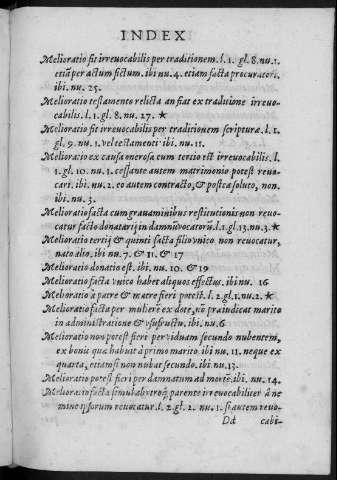 INDEX
Melioratio fit irrevocabilis per traditionem. l. 1. gl. 8. nu. 1.
etiã per actum fictum. ibi nu. 4. etiam facta procuratori.
ibi. nu. 25.
Melioratio testamento relicta an fiat ex traditione irrevo-
cabilis. l. 1. gl. 8. nu. 27. ★
Melioratio fit irrevocabilis per traditionem scripturæ. l. 1.
gl. 9. nu. 1. vel testamenti ibi. nu. 11.
Melioratio ex causa onerosa cum tertio est irrevocabilis. l.
1. gl. 10. nu. 1. cessante autem matrimonio potest revo-
cari. ibi nu. 2. eo autem contracto, & postea soluto, non.
ibi nu. 3.
Melioratio facta cum gravaminibus restitutionis non revo-
catur facto donatarij in damnũ vocatorũ. l. 1. gl. 13. nu. 3. ★
Melioratio tertij & quinti facta filio vnico non revocatur,
nato alio, ibi nu. 7. & 11. & 17
Melioratio donatio est. ibi nu. 10. & 19
Melioratio facta vnico habet aliquos effectus. ibi nu. 16
Melioratio à patre & matre fieri potest. l. 2. gl. 1. nu. 2. ★
Melioratio facta per mulierẽ ex dote, nõ præiudicat marito
in administratione & vsufructu, ibi nu. 6
Melioratio non potest fieri per viduam secundo nubentem,
ex bonis quæ habuit à primo marito. ibi nu. 11. neque ex
quarta, etiamsi non nubat secundo. ibi nu. 13.
Melioratio potest fieri per damnatum ad mortẽ. ibi. nu. 14.
Melioratio facta simul ab vtroq́; parente irrevocabiliter à ne
mine ipsorum revocatur. l. 2. gl. 2. nu. 1. si autem revo-
Dd cabi-